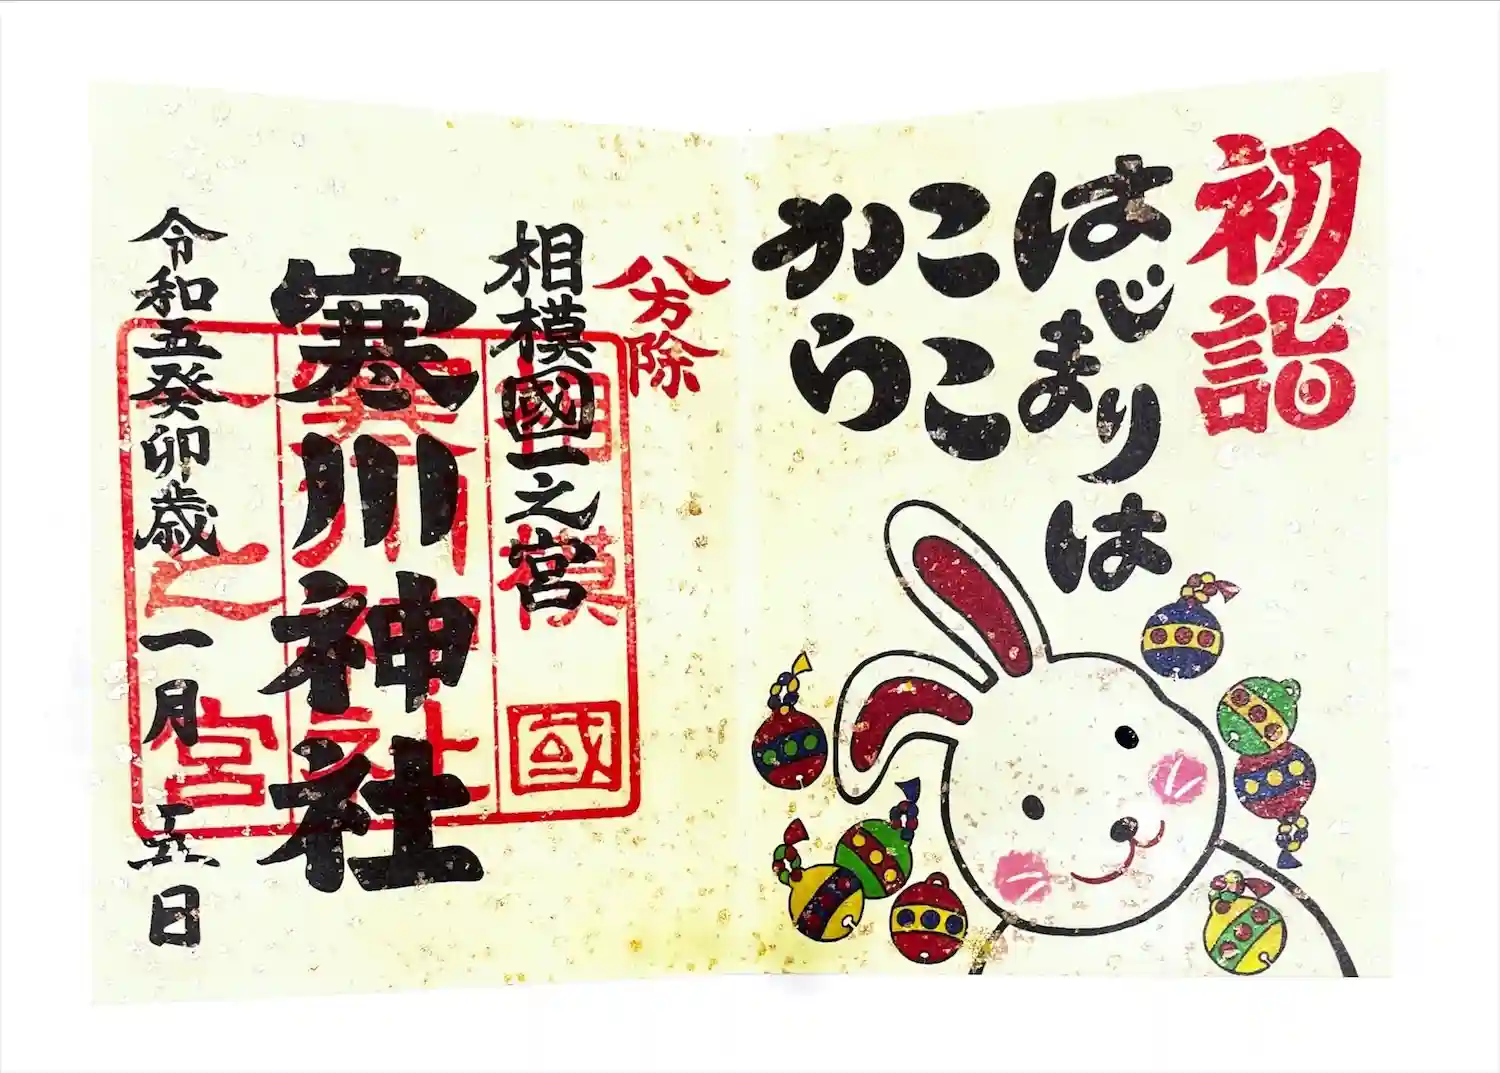 初詣
はじまりは
ここ
から
八方除
相模國一之宮
寒川神社
令和五癸卯歳一月五日
相模國
寒川神社
一之宮